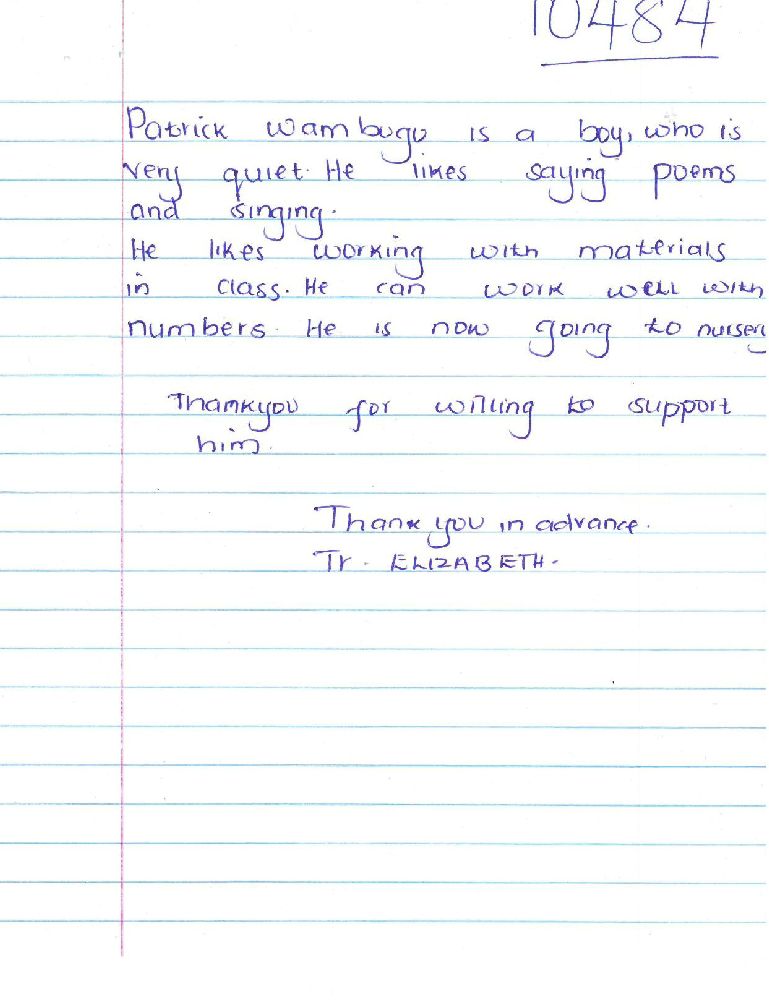 10484
Patrick Wambugu is a boy, who is
very quiet. He likes saying poems
and singing.
He likes working with materials
in class. He can work well with
numbers. He is now going to nursery
Thankyou for willing to support
him.
Thank you in advance.
Tr. ELIZABETH.